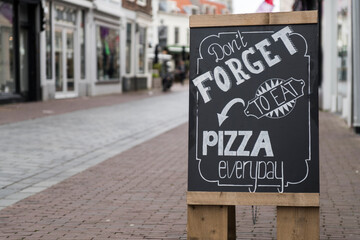 Don't
FORGET
TO EAT
PIZZA
everyday